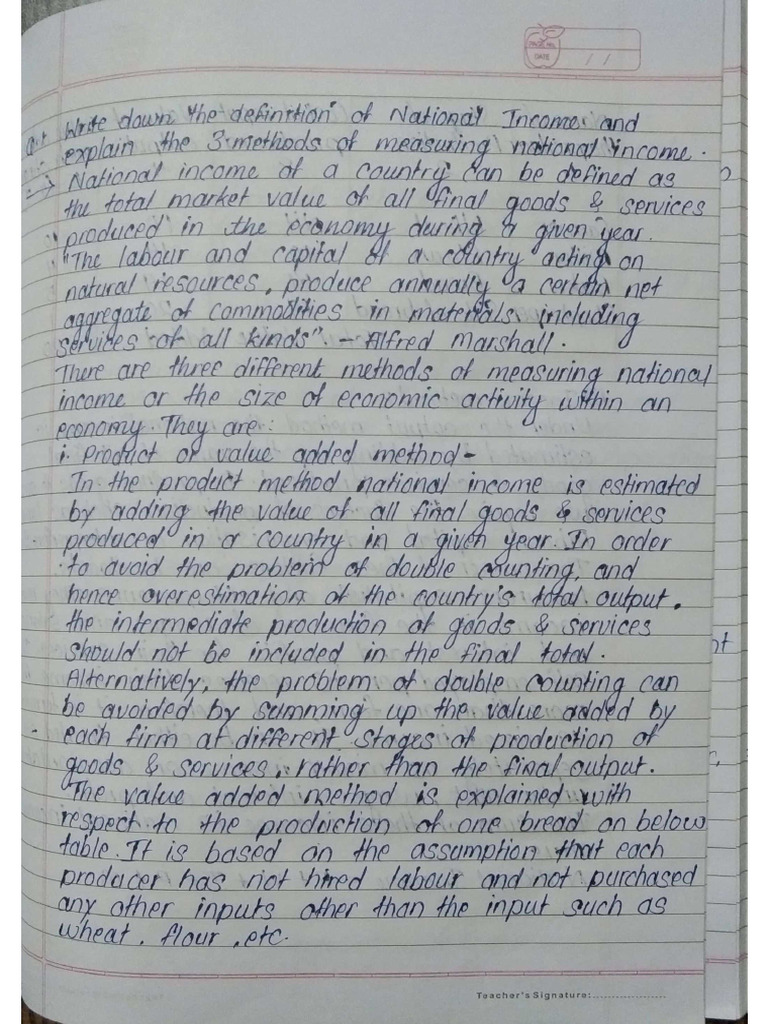 PAGE NO.
DATE / /
Q.1 Write down the definition of National Income and
explain the 3 methods of measuring national income.
→ National income of a country can be defined as
the total market value of all final goods & services
produced in the economy during a given year.
"The labour and capital of a country acting on
natural resources, produce annually a certain net
aggregate of commodities in materials, including
services of all kinds". - Alfred Marshall.
There are three different methods of measuring national
income or the size of economic activity within an
economy. They are:
i. Product or value added method-
In the product method national income is estimated
by adding the value of all final goods & services
produced in a country in a given year. In order
to avoid the problem of double counting, and
hence overestimation of the country's total output,
the intermediate production of goods & services
should not be included in the final total.
Alternatively, the problem of double counting can
be avoided by summing up the value added by
each firm at different stages of production of
goods & services, rather than the final output.
The value added method is explained with
respect to the production of one bread on below
table. It is based on the assumption that each
producer has not hired labour and not purchased
any other inputs other than the input such as
wheat, flour, etc.
Teacher's Signature: